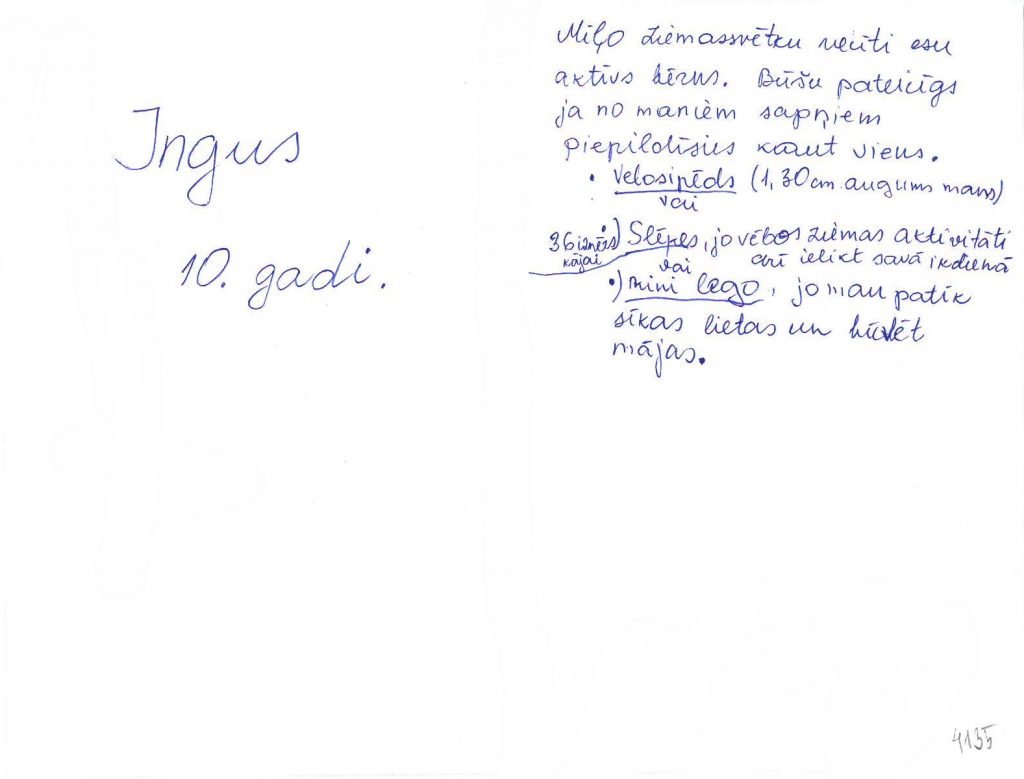 Ingus
10. gadi.
Miļo Ziemassvētku vecīti esu
aktīvs bērns. Būšu pateicīgs
ja no maniem sapņiem
piepildīsies kaut viens.
• Velosipēds (1,30cm augums mans)
vai
36 izmērs kājai •) Slēpes, jo vēlos ziemas aktivitāti
vai arī ielikt savā ikdienā
•) mini lego, jo man patīk
sīkas lietas un būvēt
mājas.
4135